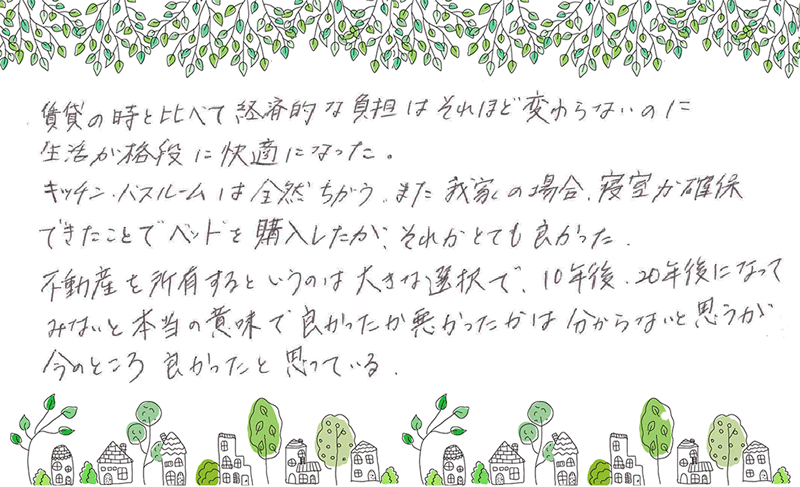 賃貸の時と比べて経済的な負担はそれほど変わらないのに
生活が格段に快適になった。
キッチン・バスルームは全然ちがう。また我家の場合、寝室が確保
できたことでベッドを購入したが、それがとても良かった。
不動産を所有するというのは大きな選択で、10年後、20年後になって
みないと本当の意味で良かったか悪かったかは分からないと思うが
今のところ良かったと思っている。